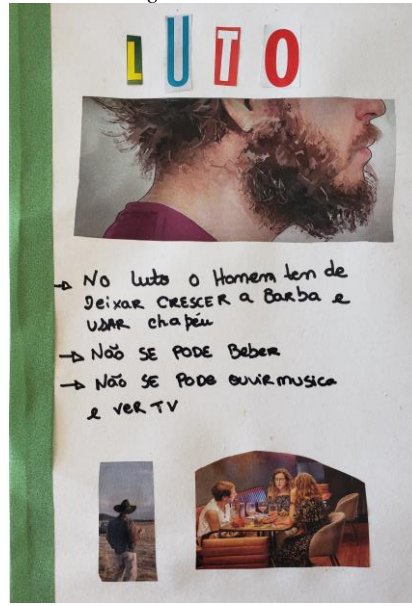 LUTO
→ No luto o Homem tem de
Deixar CRESCER a Barba e
USAR chapéu
→ Não SE PODE Beber
→ Não SE PODE ouvir musica
e VER TV